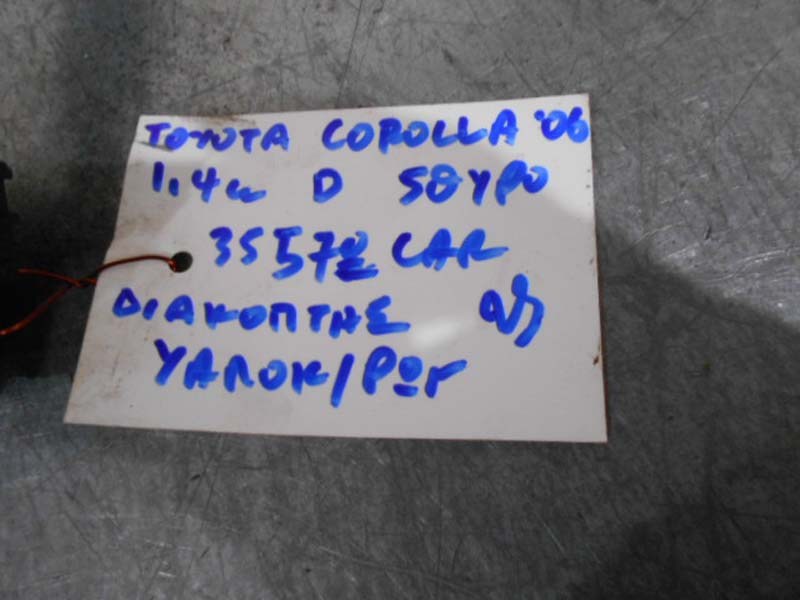 TOYOTA COROLLA '06
1.4cc D 5ΘΥΡΟ
CAR
ΔΙΑΚΟΠΤΗΣ
ΥΑΛΟΚ/ΡΩΝ